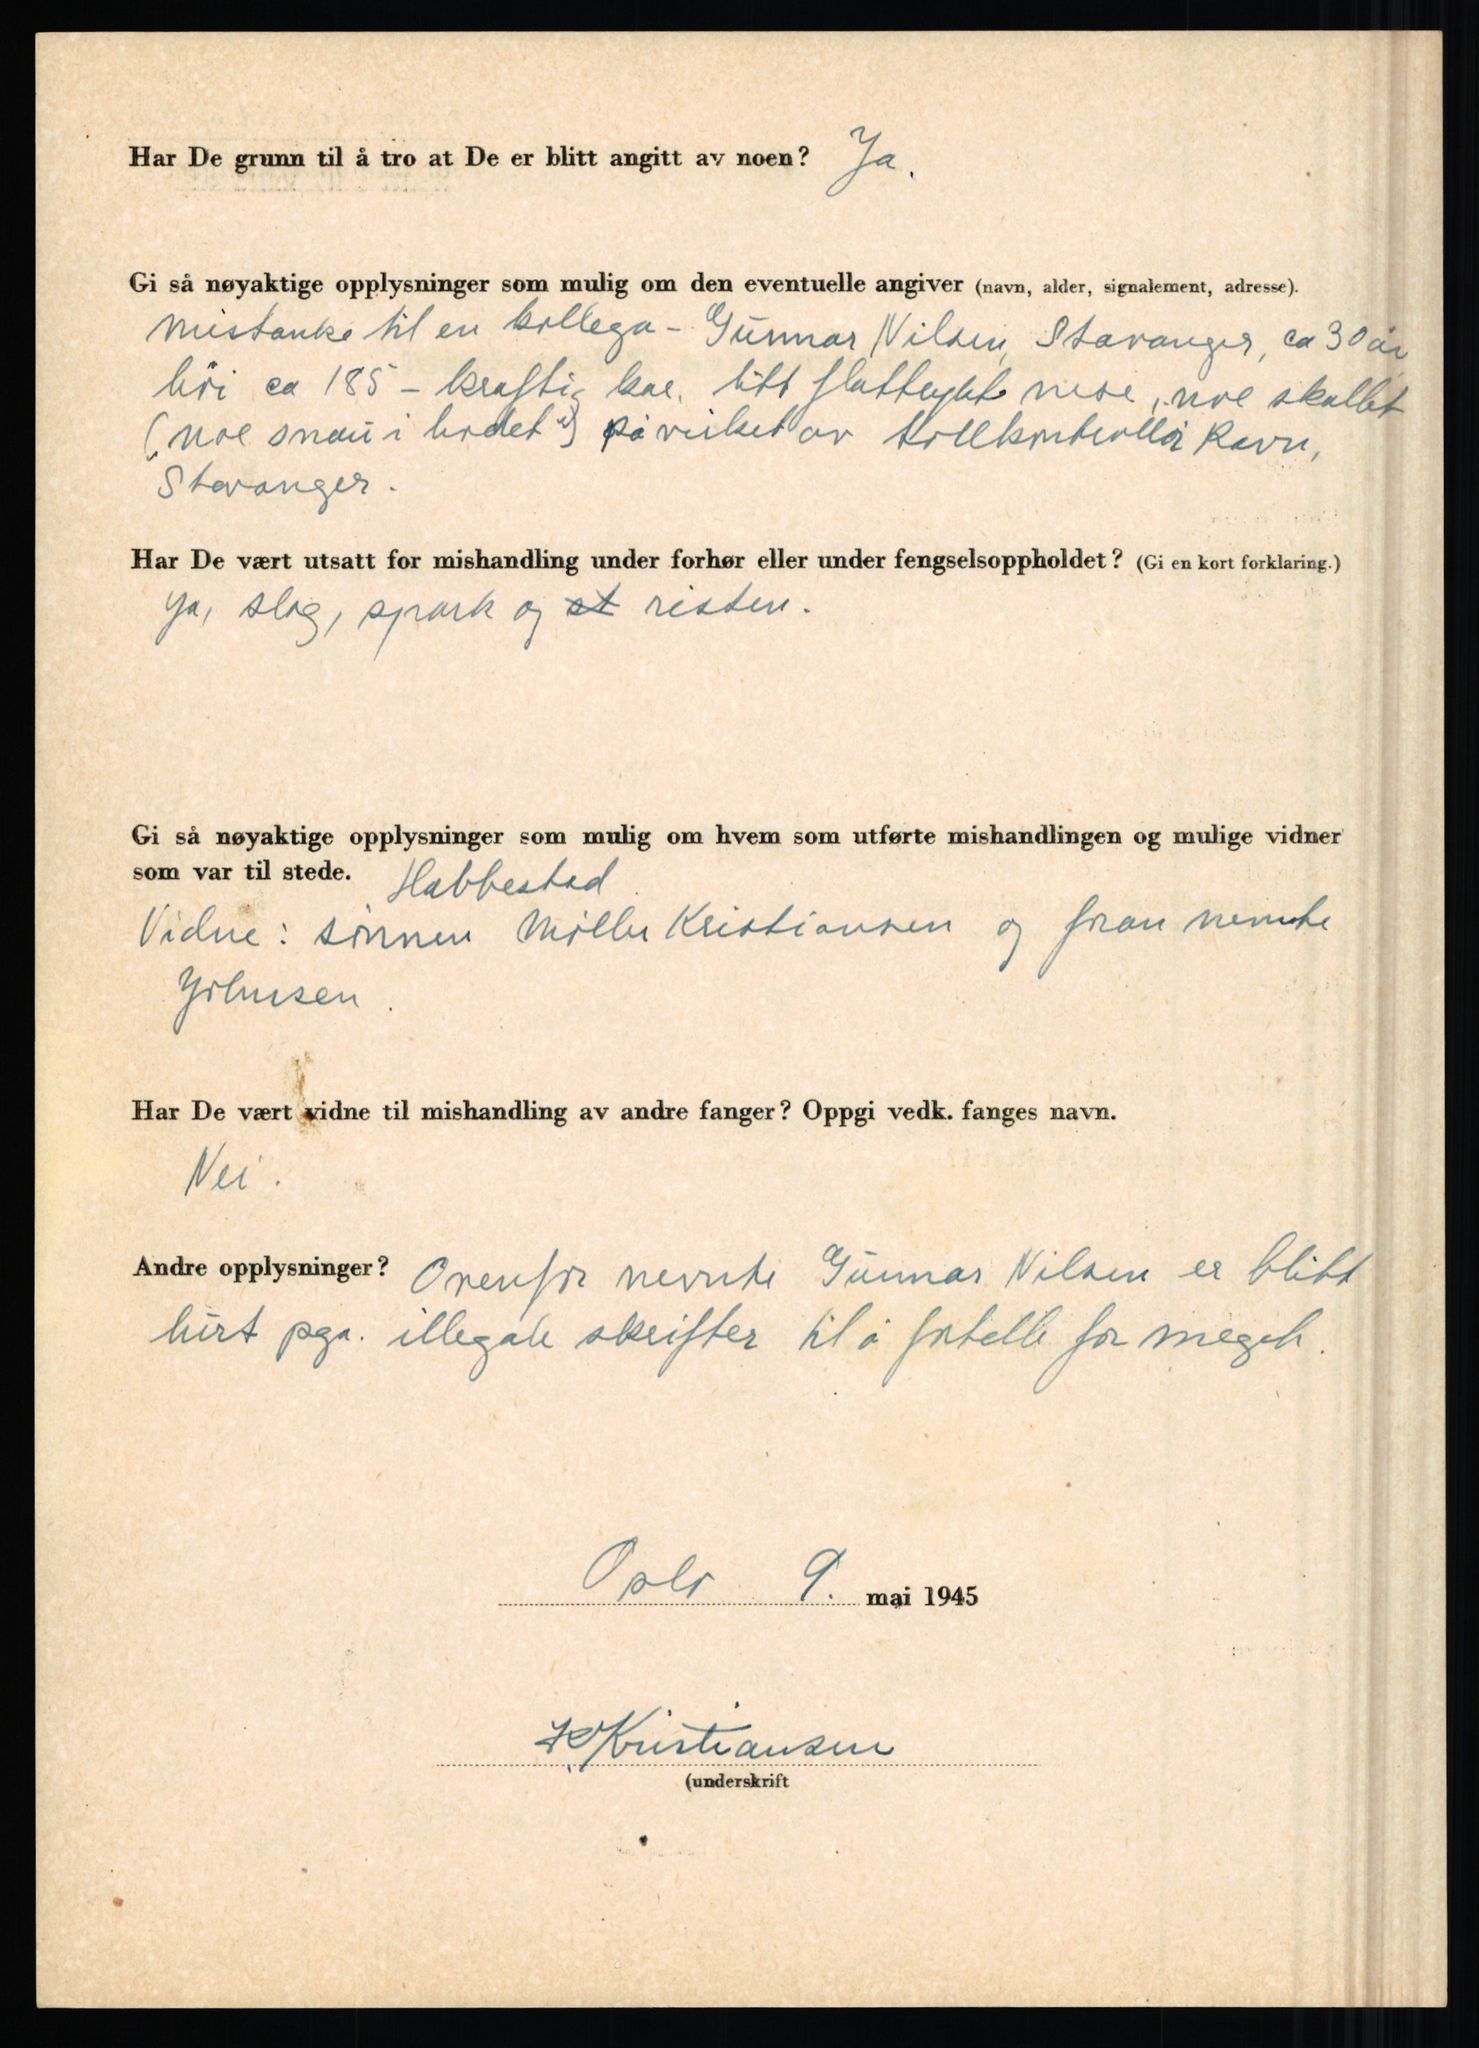 Har De grunn til å tro at De er blitt angitt av noen? Ja.
Gi så nøyaktige opplysninger som mulig om den eventuelle angiver (navn, alder, signalement, adresse).
Mistanke til en kollega - Gunnar Nilsen, Stavanger, ca 30 år
höi ca 185 - kraftig kar. litt flattrykt nese, noe skallet
("noe snau i hodet") påvirket av tollkontrollör Ravn,
Stavanger.
Har De vært utsatt for mishandling under forhør eller under fengselsoppholdet? (Gi en kort forklaring.)
Ja, slag, spark og risten.
Gi så nøyaktige opplysninger som mulig om hvem som utførte mishandlingen og mulige vidner
som var til stede. Habbestad.
Vidne: sönnen Möller Kristiansen og foran nevnte
Johnsen.
Har De vært vidne til mishandling av andre fanger? Oppgi vedk. fanges navn.
Nei.
Andre opplysninger? Ovenfor nevnte Gunnar Nilsen er blitt
hört pga. illegale skrifter til å fortelle for meget.
Oslo 9. mai 1945
Kristiansen
(underskrift